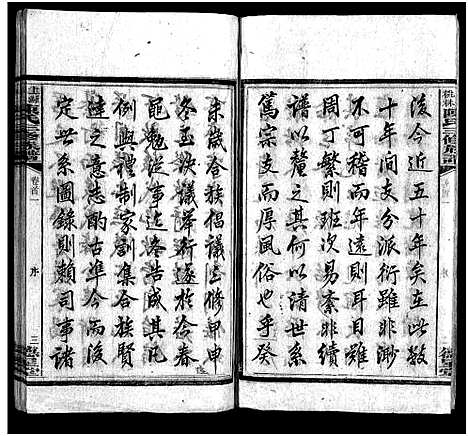 後今近五十年矣在此數
十年間支分派衍雖非渺
不可稽而年遠則耳目難
周丁繁則班次易紊非續
譜牒其何以清世系
篤宗支而厚風俗也乎癸
未歲合族倡議三修甲申
冬函欽議舉行遂於今春
黽勉從事迄冬告成其凡
例與禮制家訓集合族賢
達之意志酌古準今而後
定世系圖錄則賴司事諸
桃林陳氏三修族譜
卷首一
序
三